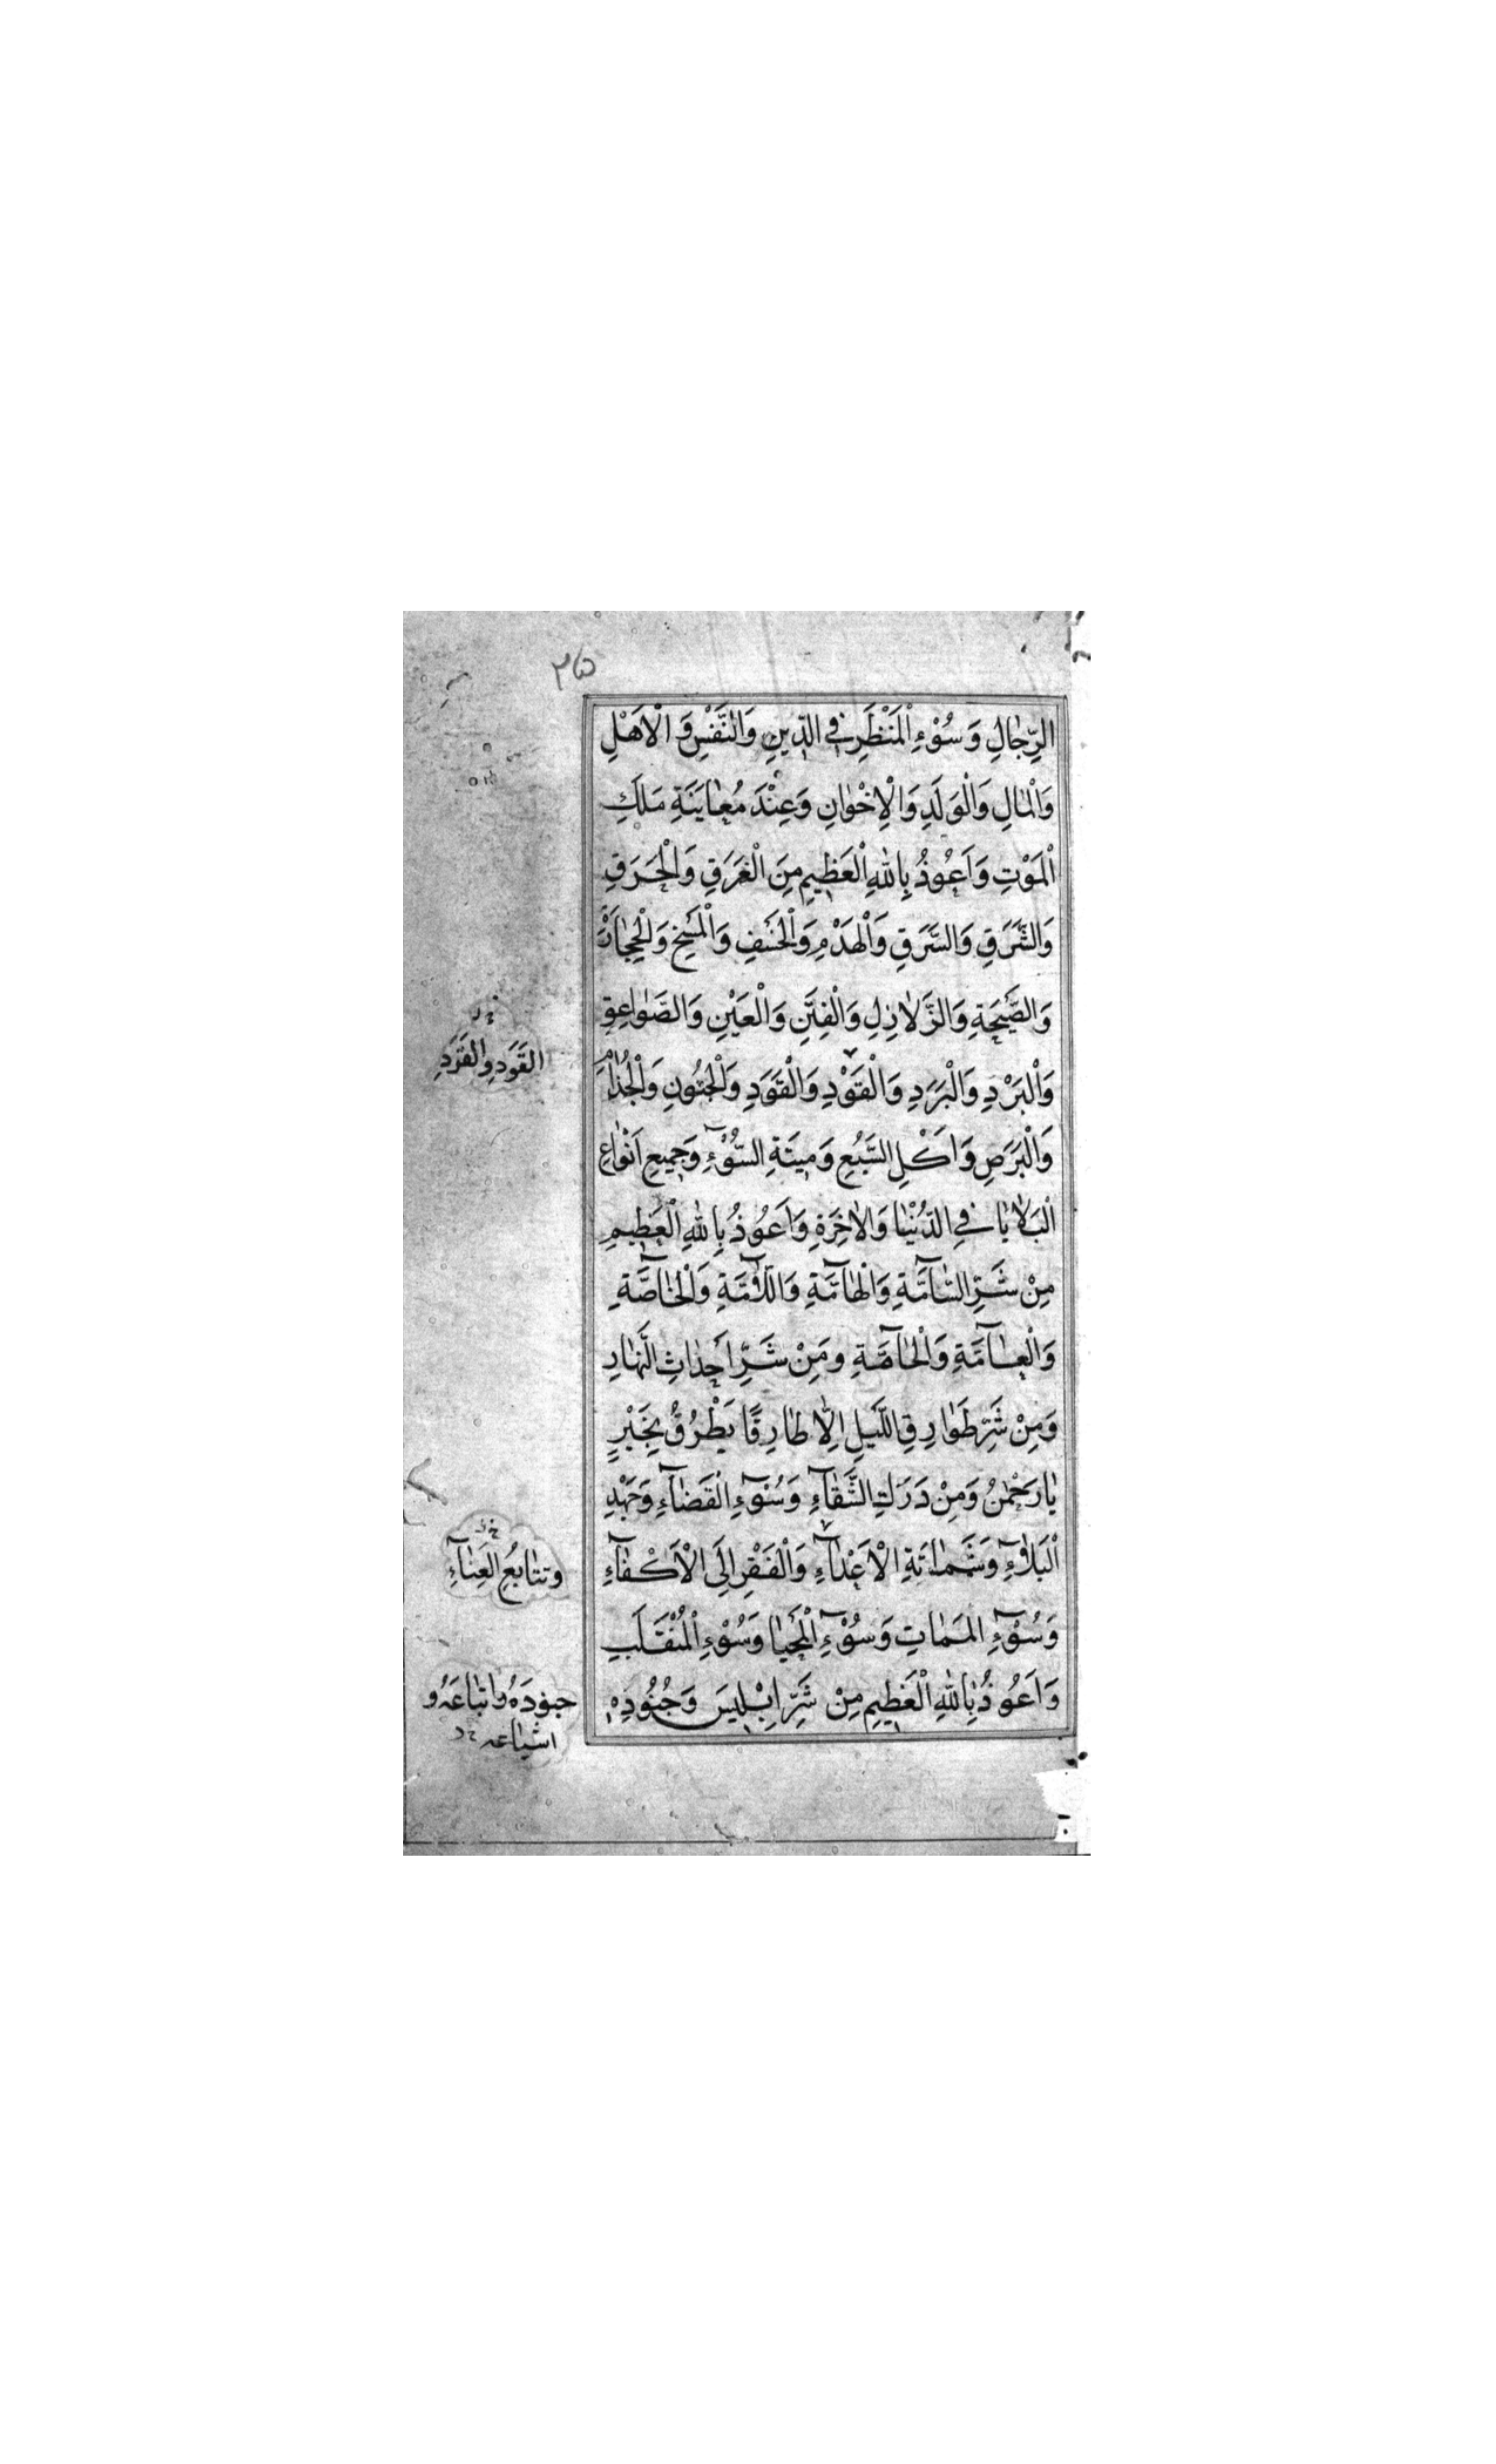 ۲۵
الرِّجالِ وَسُوْءِ الْمَنْظَرِ فِي الدِّينِ وَالنَّفْسِ وَ الْاَهْلِ
وَالْمالِ وَالْوَلَدِ وَالْاِخْوانِ وَعِنْدَ مُعايَنَةِ مَلَكِ
الْمَوْتِ وَاَعُوذُ بِاللهِ الْعَظِيمِ مِنَ الْغَرَقِ وَالْحَرَقِ
وَالشَّرَقِ وَالسَّرَقِ وَالْهَدْمِ وَالْخَسْفِ وَالْمَسْخِ وَالْحِجارَةِ
وَالصَّيْحَةِ وَالزَّلازِلِ وَالْفِتَنِ وَالْعَيْنِ وَالصَّواعِقِ
القَوَدِ والقَرَدِ
وَالْبَرْدِ وَالْبَرَدِ وَالْقَوْدِ وَالْقَوَدِ وَالْجُنُونِ وَالْجُذامِ
وَالْبَرَصِ وَ اَكْلِ السَّبُعِ وَمِيتَةِ السُّوْءِ وَجَمِيعِ اَنْواعِ
الْبَلايا فِي الدُّنْيا وَالاخِرَةِ وَاَعُوذُ بِاللهِ الْعَظِيمِ
مِنْ شَرِّ السّامَّةِ وَالْهامَّةِ وَاللّامَّةِ وَالْخاصَّةِ
وَالْعامَّةِ وَالْحامَّةِ وَمِنْ شَرِّ اَحْداثِ النَّهارِ
وَمِنْ شَرِّ طَوارِقِ اللَّيْلِ اِلّا طارِقًا يَطْرُقُ بِخَيْرٍ
يا رَحْمنُ وَمِنْ دَرَكِ الشَّقاءِ وَسُوْءِ الْقَضاءِ وَجَهْدِ
وتتابعِ العناءِ
الْبَلاءِ وَشَماتَةِ الْاَعْداءِ وَالْفَقْرِ اِلَى الْاَكْفاءِ
وَسُوْءِ الْمَماتِ وَسُوْءِ الْمَحْيا وَسُوْءِ الْمُنْقَلَبِ
وَاَعُوذُ بِاللهِ الْعَظِيمِ مِنْ شَرِّ اِبْلِيسَ وَجُنُودِهِ
جنودهُ واتباعهُ و
اشياعه